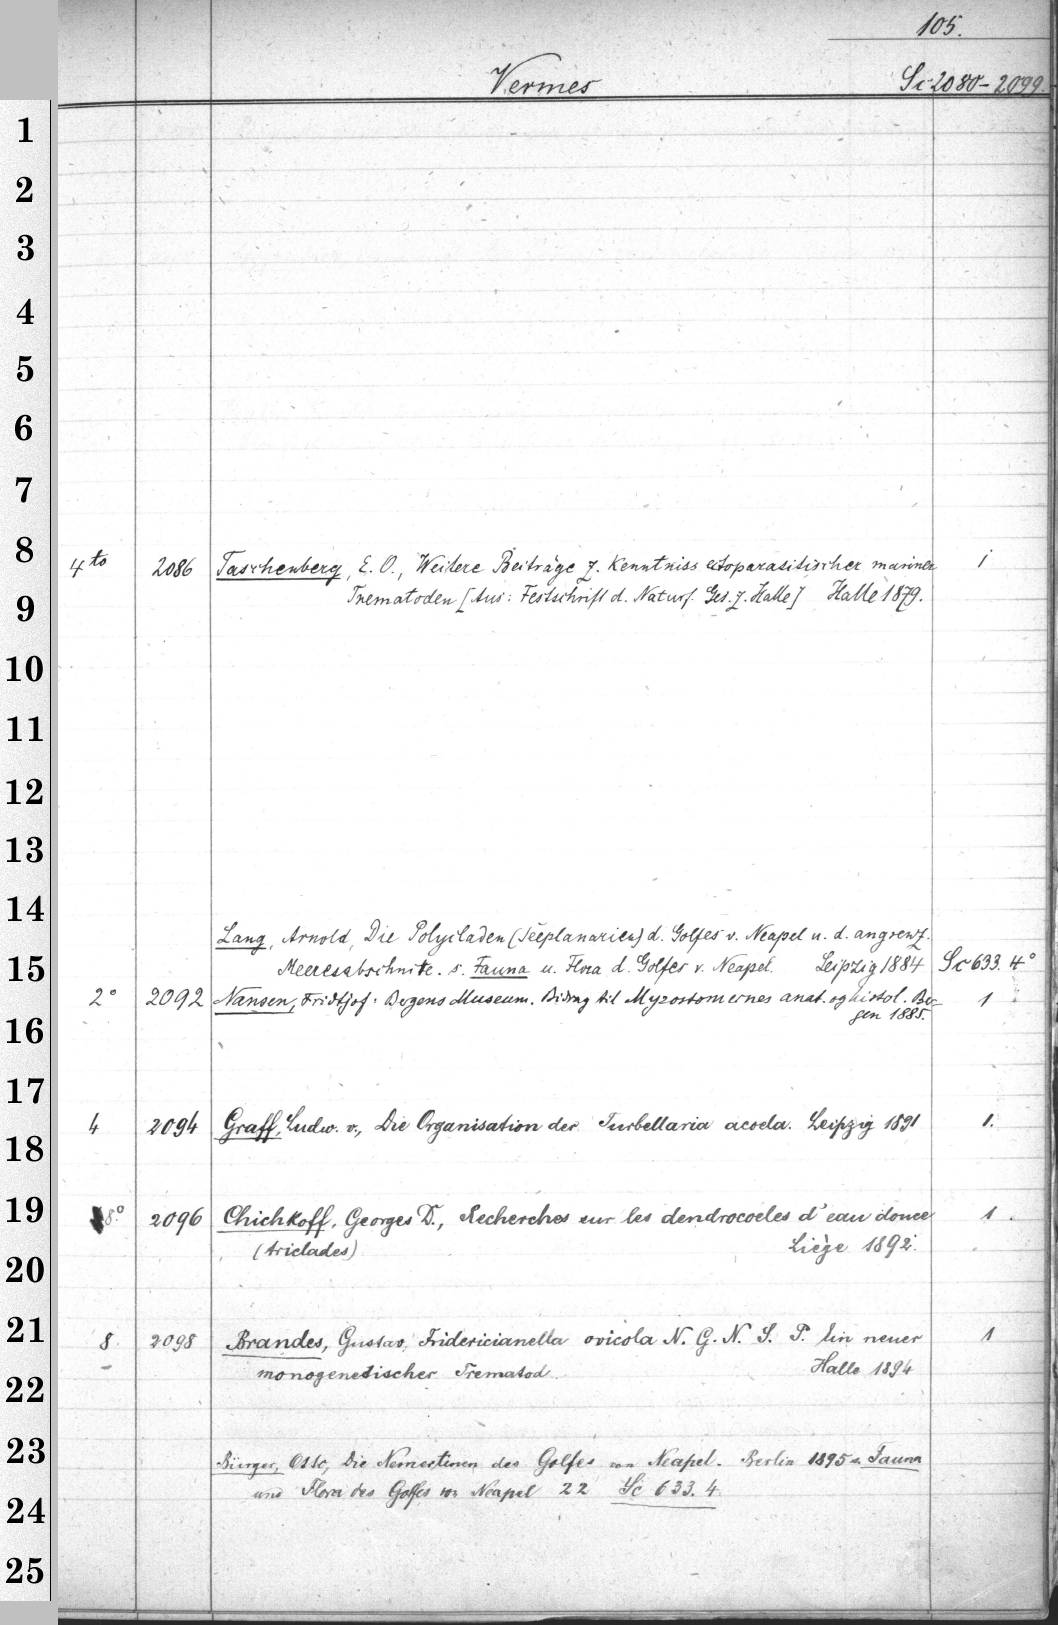 105.
Vermes Sc 2080-2099.
1
2
3
4
5
6
7
8
4to 2086 Taschenberg, E. O., Weitere Beiträge z. Kenntniss ectoparasitischer mariner 1
9
Trematoden [Aus: Festschrift d. Naturf. Ges. z. Halle] Halle 1879.
10
11
12
13
14
Lang, Arnold, Die Polycladen (Seeplanarien) d. Golfes v. Neapel u. d. angrenz.
15
Meeresabschnitte. s. Fauna u. Flora d. Golfes v. Neapel. Leipzig 1884 Sc 633. 4°
2° 2092 Nansen, Fridtjof: Bergens Museum. Bidrag til Myzostomernes anat. og histol. Ber- 1
gen 1885.
16
17
4 2094 Graff, Ludw. v., Die Organisation der Turbellaria acoela. Leipzig 1891 1.
18
19
8° 2096 Chichkoff, Georges D., Recherches sur les dendrocoeles d'eau douce 1
(triclades) Liège 1892.
20
21
8 2098 Brandes, Gustav, Fridericianella ovicola N. G. N. S. P. Ein neuer 1
monogenetischer Trematod. Halle 1894
22
23
Bürger, Otto, Die Nemertinen des Golfes von Neapel. Berlin 1895 s. Fauna
und Flora des Golfes von Neapel 22 Sc 633. 4
24
25